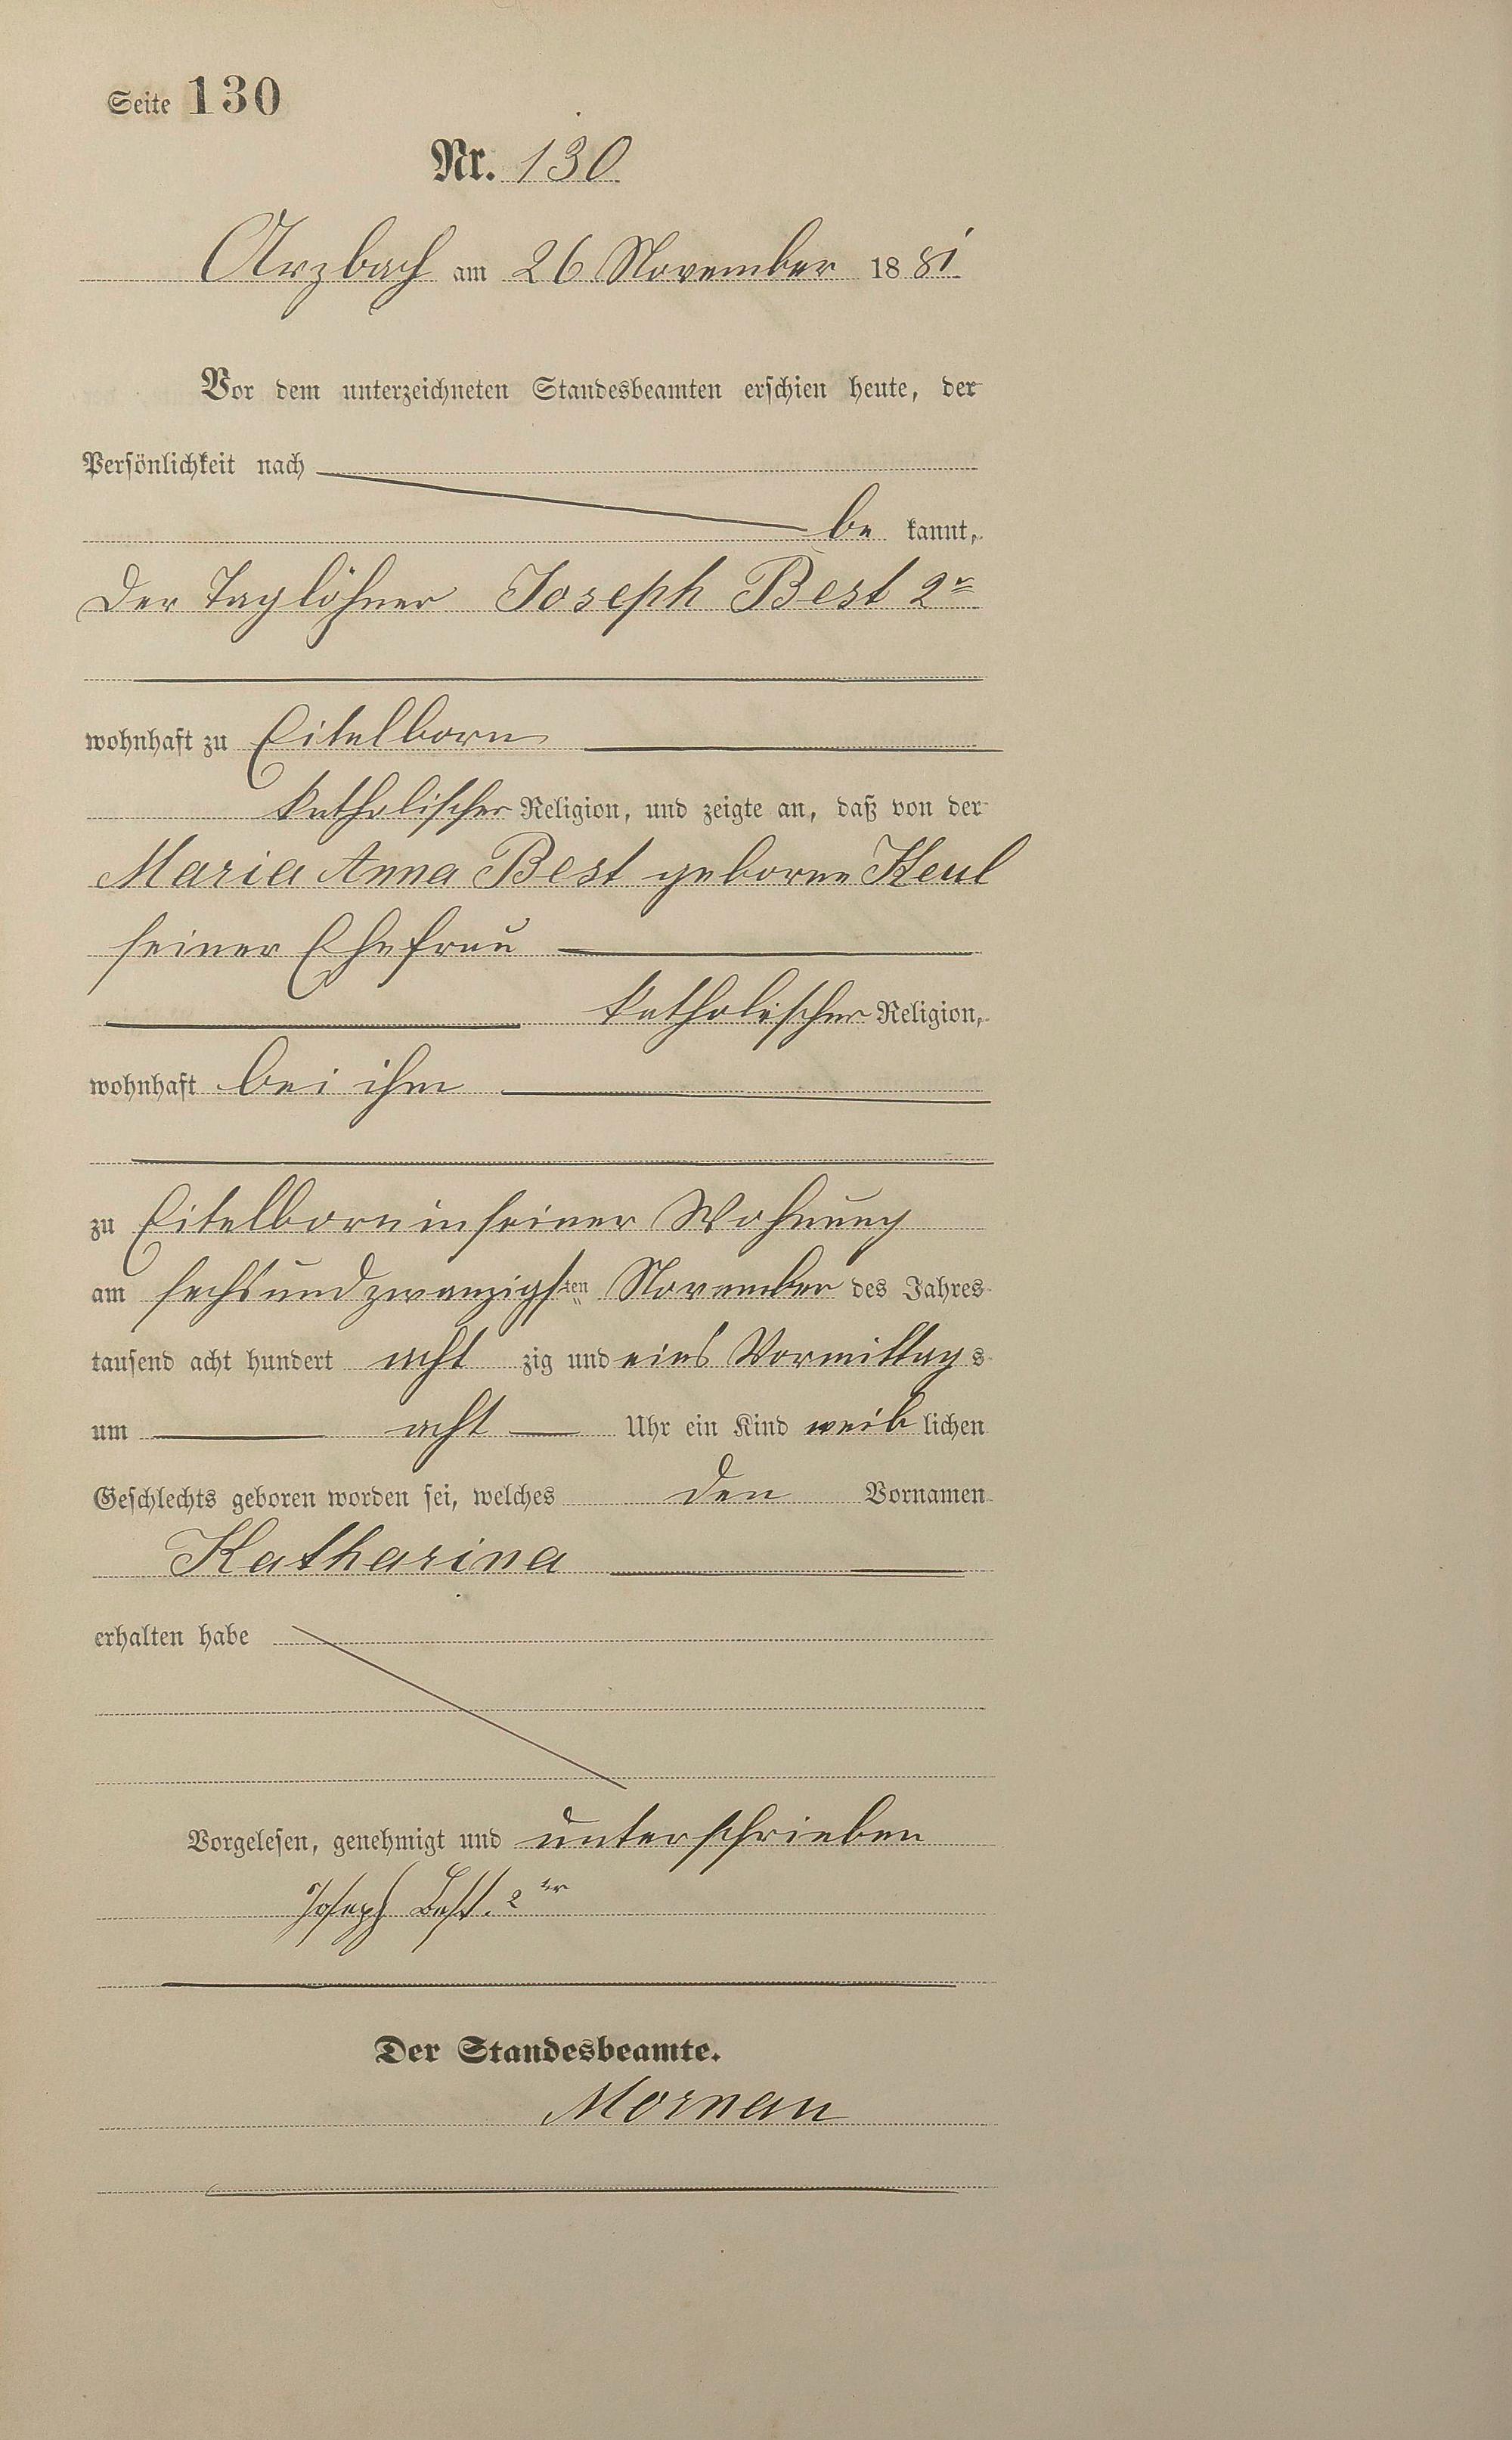 Seite 130
Nr. 130
Arzbach am 26 November 1881
Vor dem unterzeichneten Standesbeamten erschien heute, der
Persönlichkeit nach
be kannt,
Der Taglöhner Joseph Best 2r
wohnhaft zu Eitelborn
katholischer Religion, und zeigte an, daß von der
Maria Anna Best geborne Keul
seiner Ehefrau
katholischer Religion,
wohnhaft bei ihm
zu Eitelborn in seiner Wohnung
am sechsundzwanzigsten November des Jahres
tausend acht hundert acht zig und eins Vormittags
um acht Uhr ein Kind weib lichen
Geschlechts geboren worden sei, welches den Vornamen
Katharina
erhalten habe
Vorgelesen, genehmigt und unterschrieben
Joseph Best. 2ter
Der Standesbeamte.
Mornau